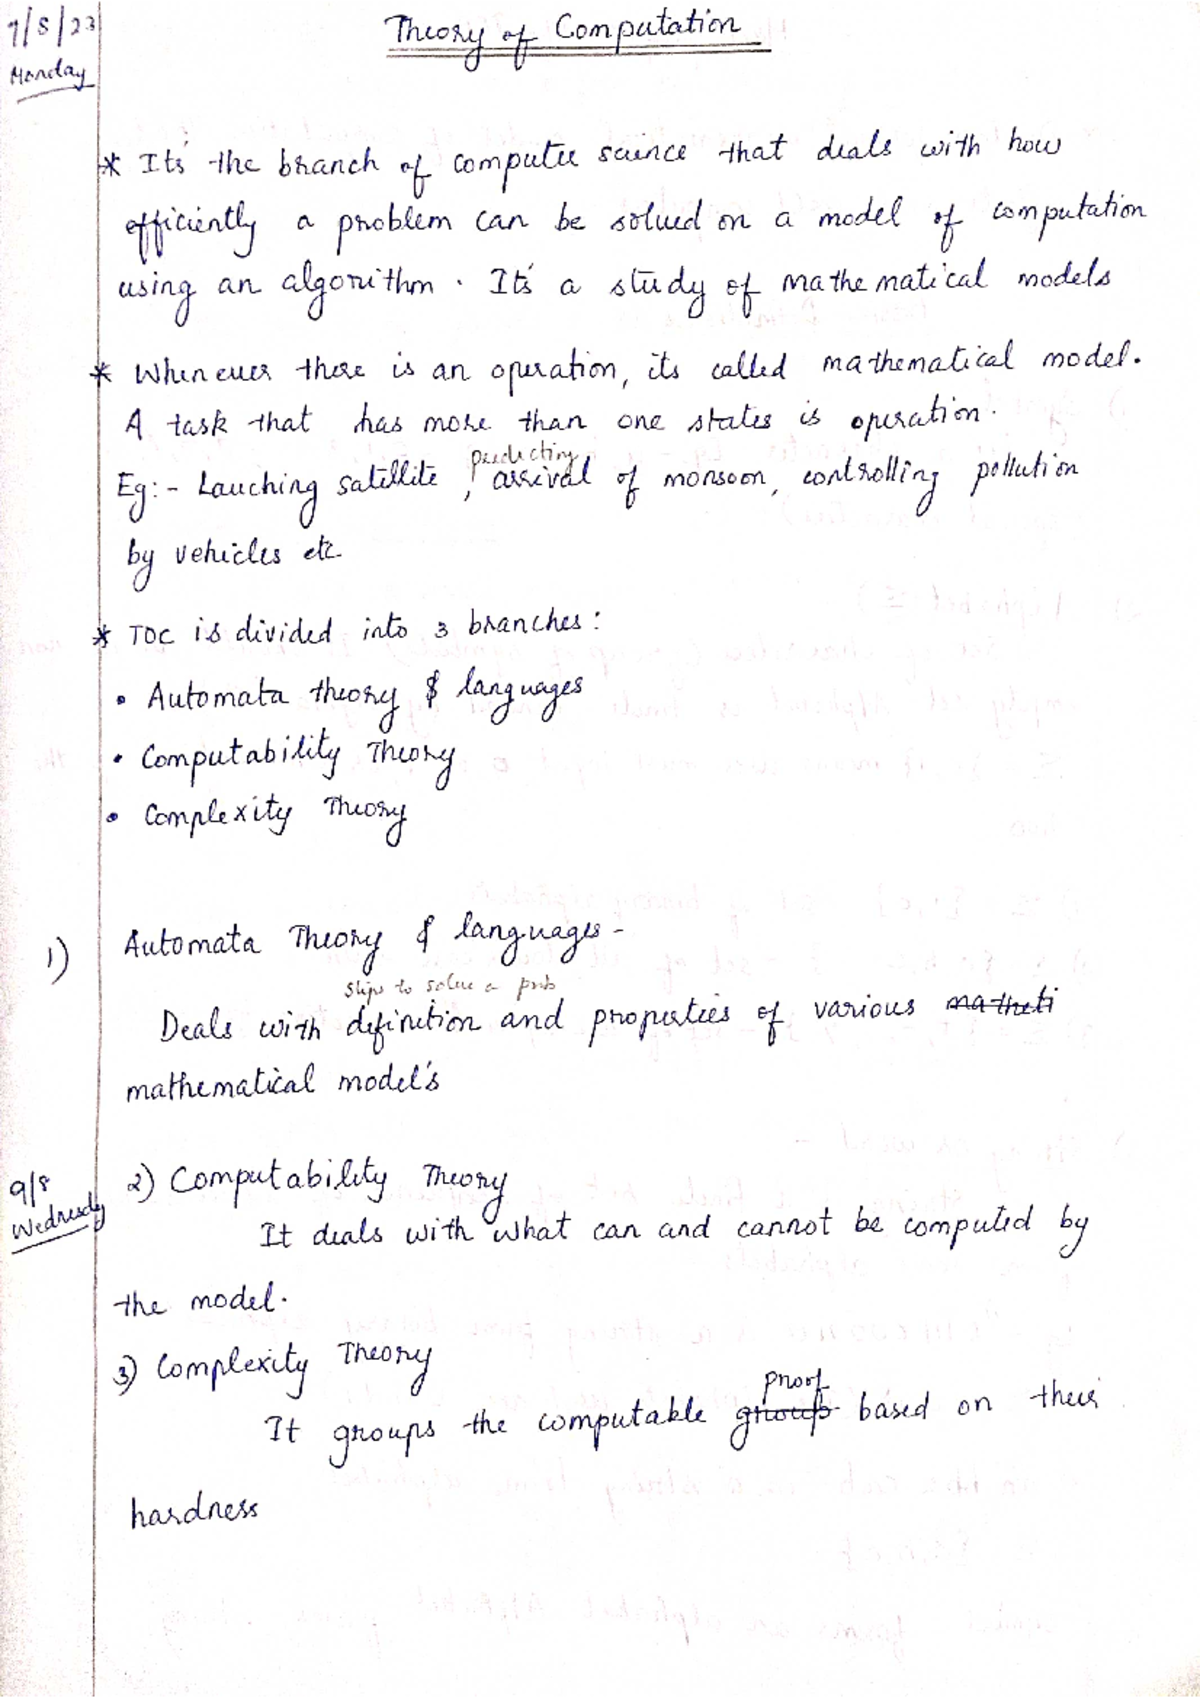 7/8/23
Monday
Theory of Computation
* Its the branch of computer science that deals with how
efficiently a problem can be solved on a model of computation
using an algorithm. It's a study of mathematical models
* Whenever there is an operation, its called mathematical model.
A task that has more than one states is operation.
predicting
Eg:- Lauching satellite, arrival of monsoon, controlling pollution
by vehicles etc.
* TOC is divided into 3 branches:
• Automata theory & languages
• Computability Theory
• Complexity Theory
1) Automata Theory & languages -
steps to solve a prob
Deals with definition and properties of various matheti
mathematical model's
9/8
Wednesday
2) Computability Theory
It deals with what can and cannot be computed by
the model.
3) Complexity Theory
proof
It groups the computable groups based on their
hardness